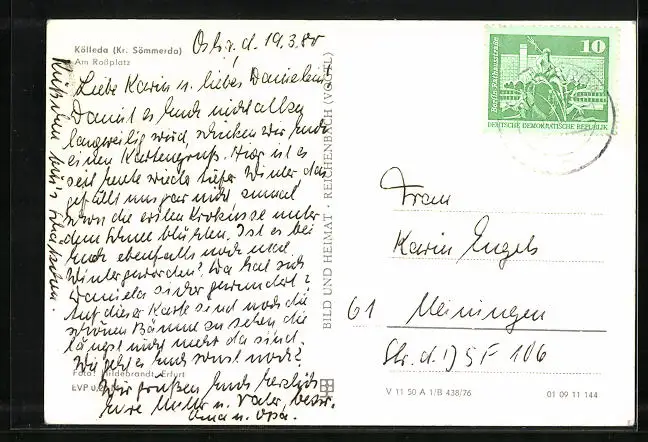 Kölleda (Kr. Sömmerda)
Am Roßplatz
d. 19.3.80
Liebe Karin u. liebes Danielein
Damit es Euch nicht allzu
langweilig wird, schicken wir Euch
einen Kartengruß. Hier ist es
seit heute wieder Winter das
gefällt uns gar nicht, zumal
schon die ersten Krokusse unter
dem Schnee blühten. Ist es bei
Euch ebenfalls noch mal
Winter geworden? Da hat sich
Daniela sicher gewundert?
Auf dieser Karte sind noch die
schönen Bäume zu sehen die
längst nicht mehr da sind.
Wie geht es Euch sonst noch?
Wir grüßen Euch herzlich
Eure Mutter u. Vater, bezw.
Oma u. Opa.
Foto: Hildebrandt, Erfurt
EVP
BILD UND HEIMAT · REICHENBACH (VOGTL)
10
Berlin, Rathausstraße
DEUTSCHE DEMOKRATISCHE REPUBLIK
Frau
Karin Engels
61 Meiningen
Str. d. DSF 106
V 11 50 A 1/B 438/76
01 09 11 144